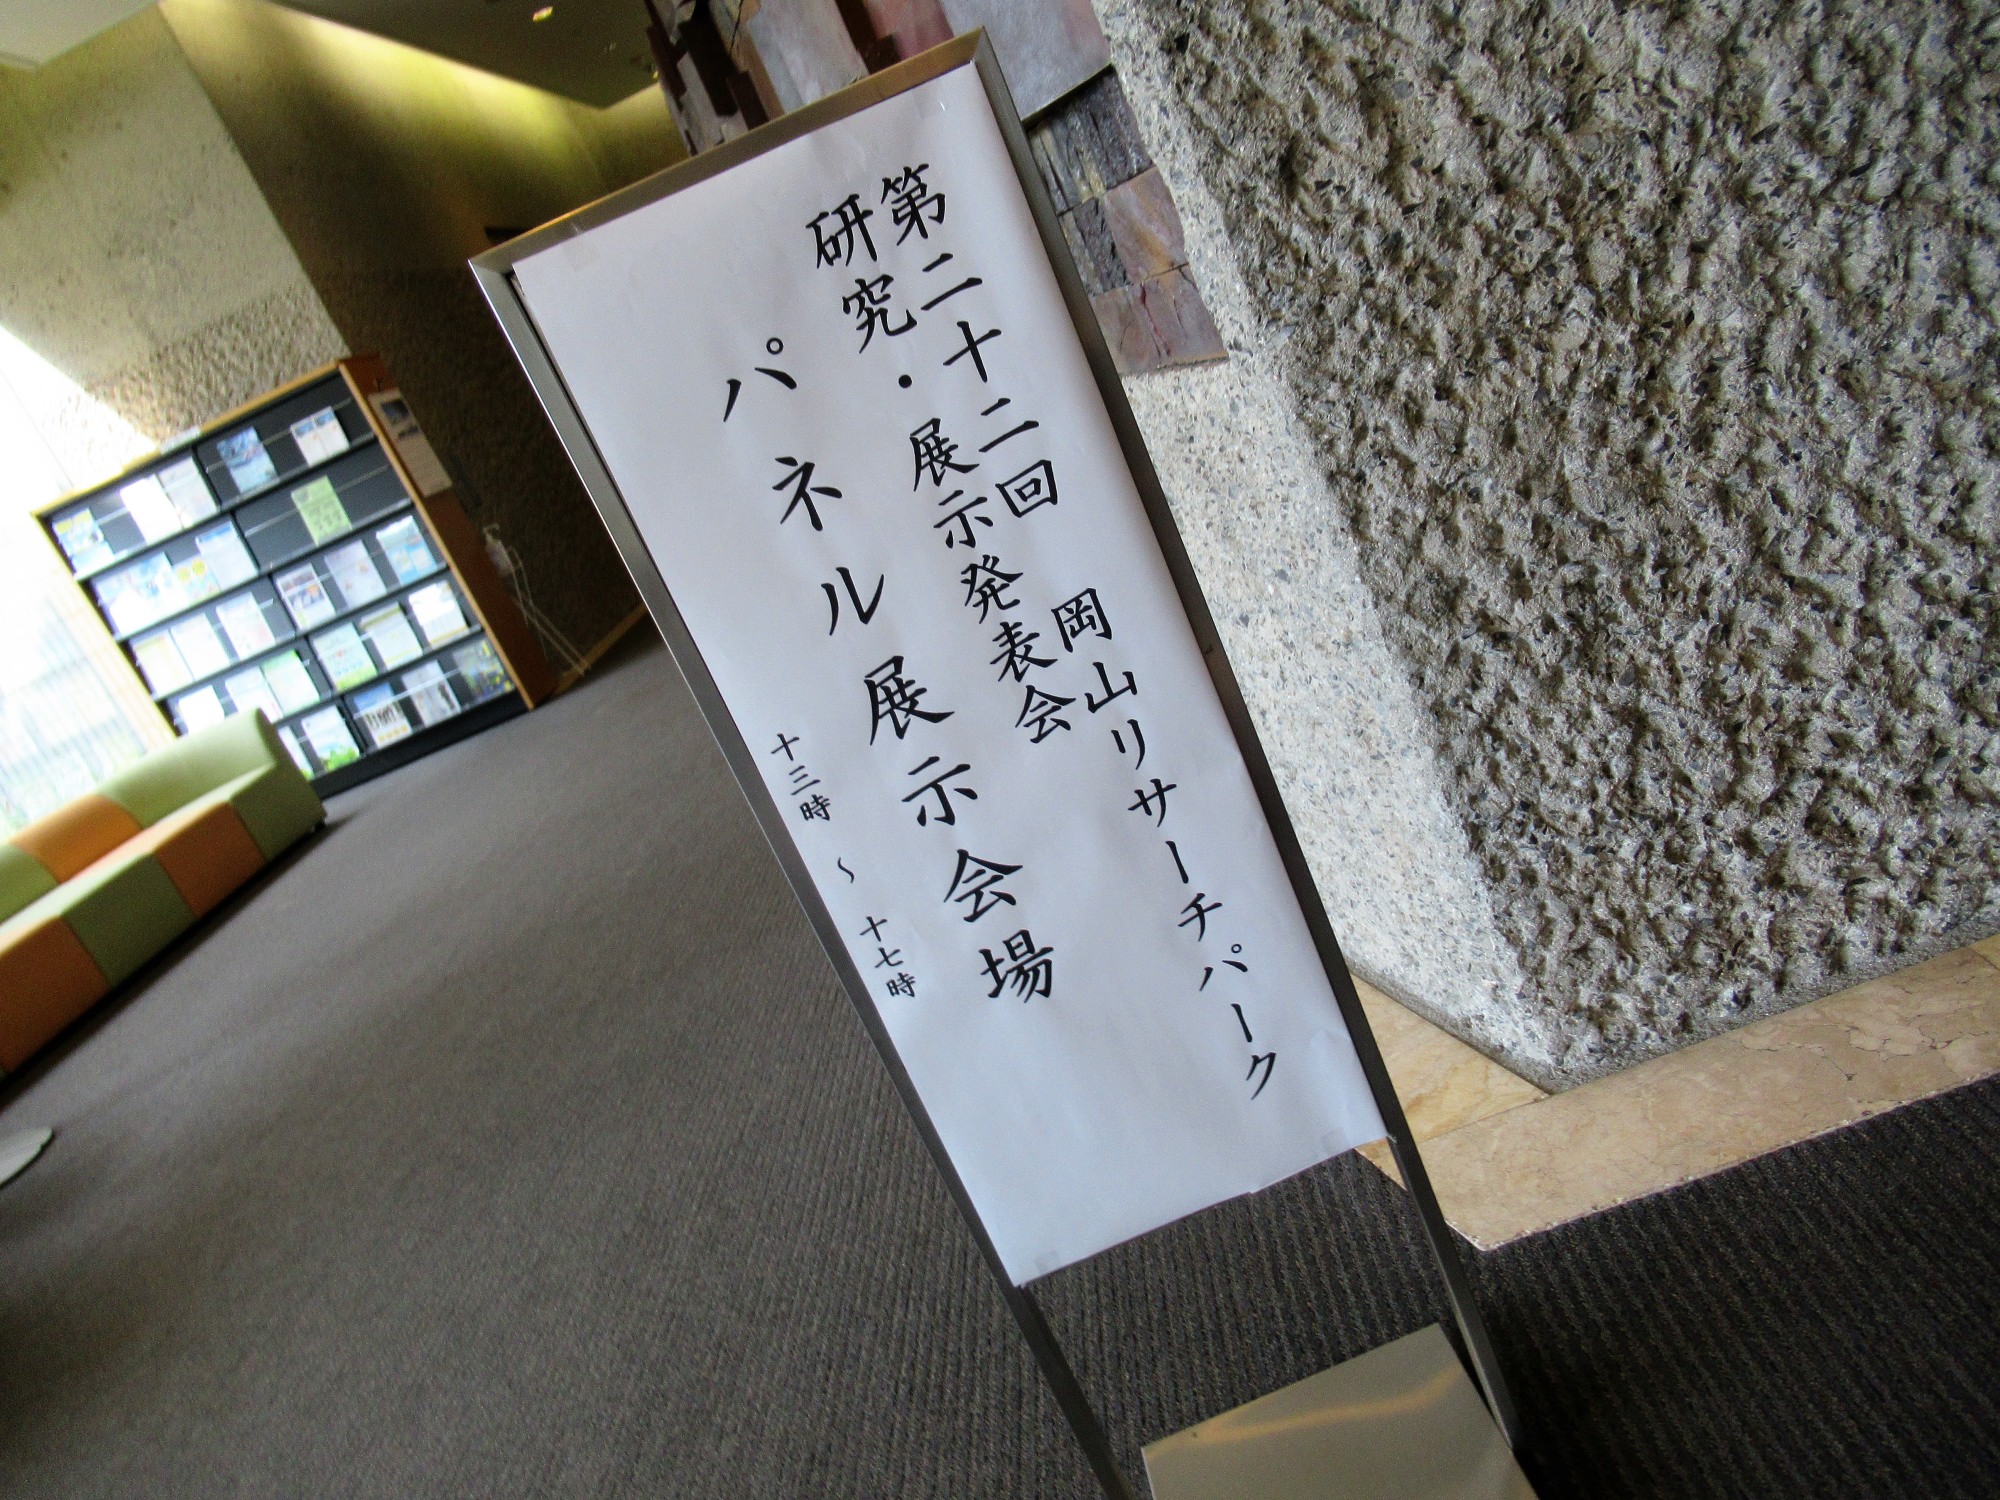 第二十二回 岡山リサーチパーク
研究・展示発表会
パネル展示会場
十三時 ～ 十七時